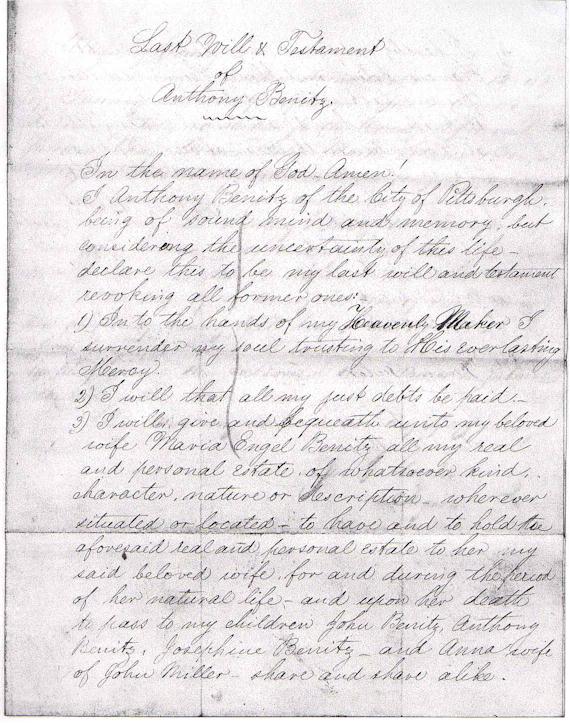 Last Will & Testament
of
Anthony Benitz.
In the name of God Amen!
I Anthony Benitz of the City of Pittsburgh,
being of sound mind and memory, but
considering the uncertainty of this life –
declare this to be my last will and testament
revoking all former ones:
1) In to the hands of my Heavenly Maker I
surrender my soul trusting to His everlasting
Mercy.
2) I will that all my just debts be paid.–
3) I will, give and bequeath unto my beloved
wife Maria Engel Benitz all my real
and personal estate of whatsoever kind,
character, nature or description – wherever
situated or located – to have and to hold the
aforesaid real and personal estate to her my
said beloved wife, for and during the period
of her natural life – and upon her death
to pass to my children John Benitz, Anthony
Benitz, Josephine Benitz – and Anna, wife
of John Miller – share and share alike.